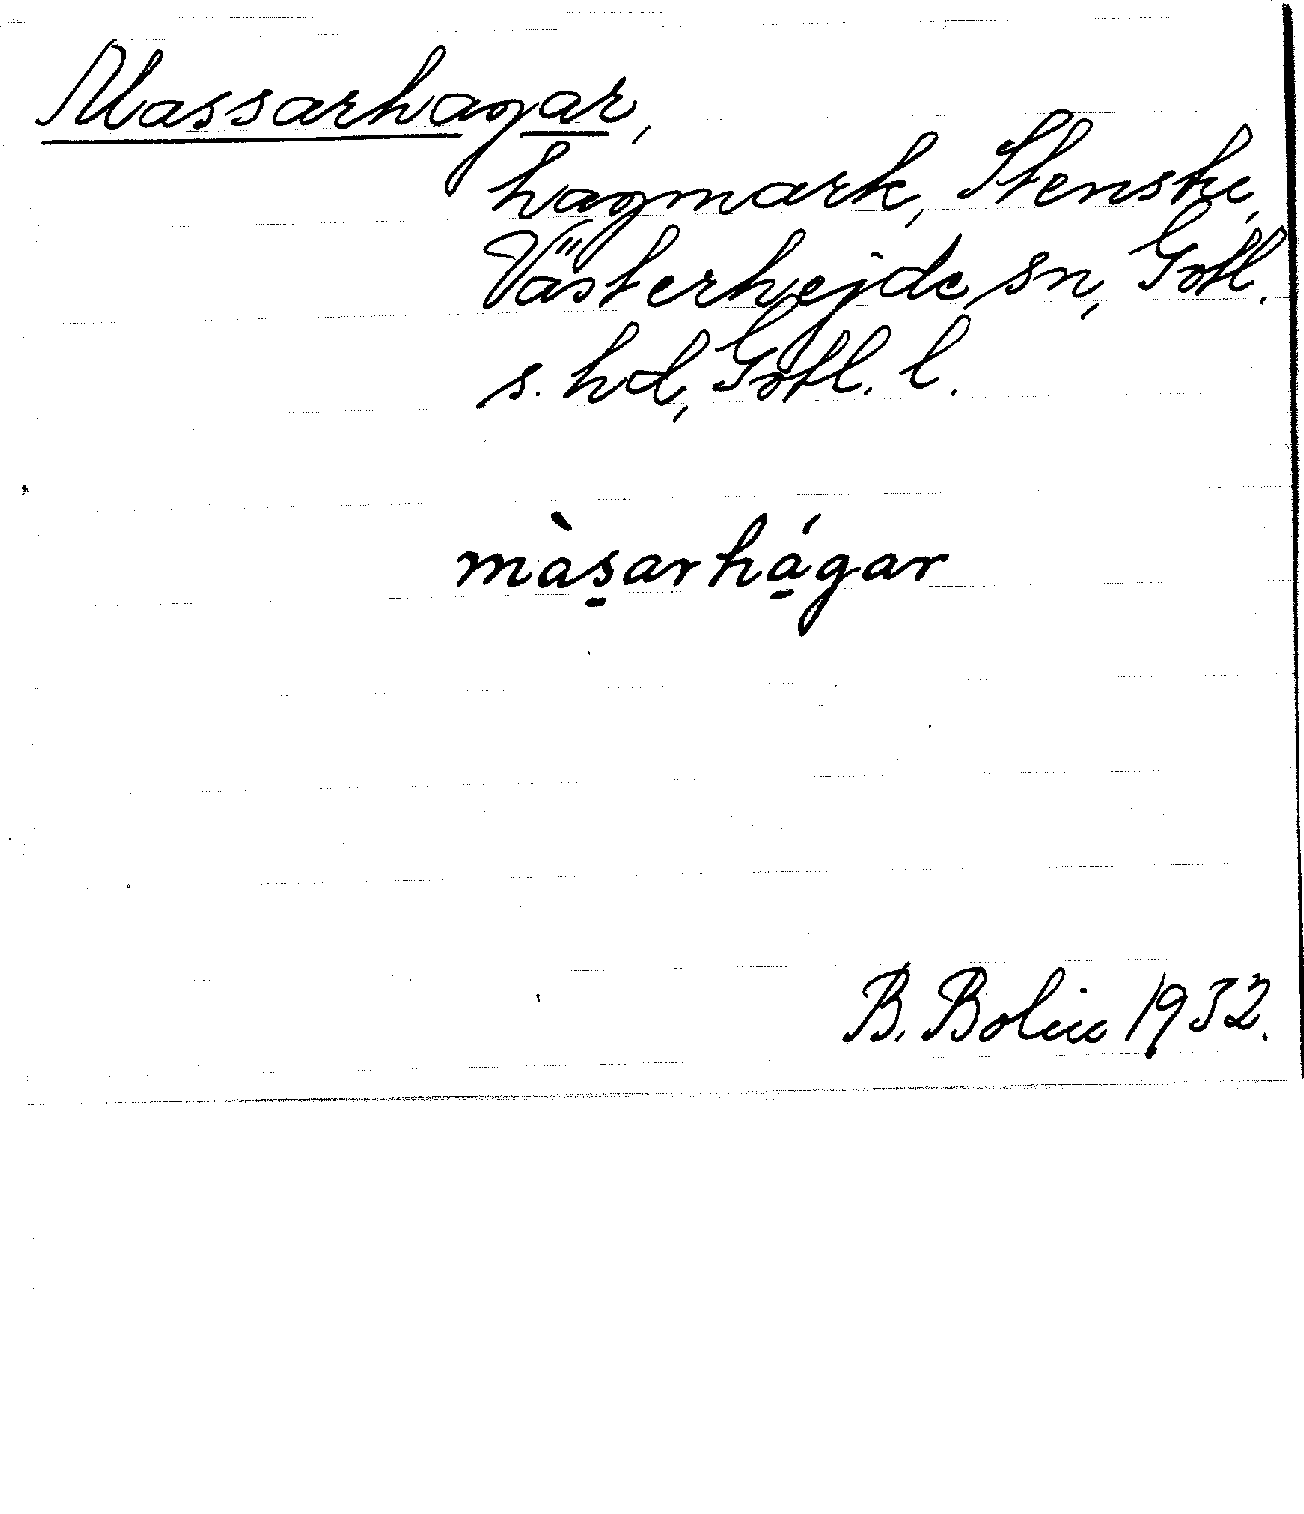 Massarhagar,
hagmark, Stenstu,
Västerhejde sn, Gotl.
s. hd, Gotl. l.
màs̱arhá̱gar
B. Bolin 1932.